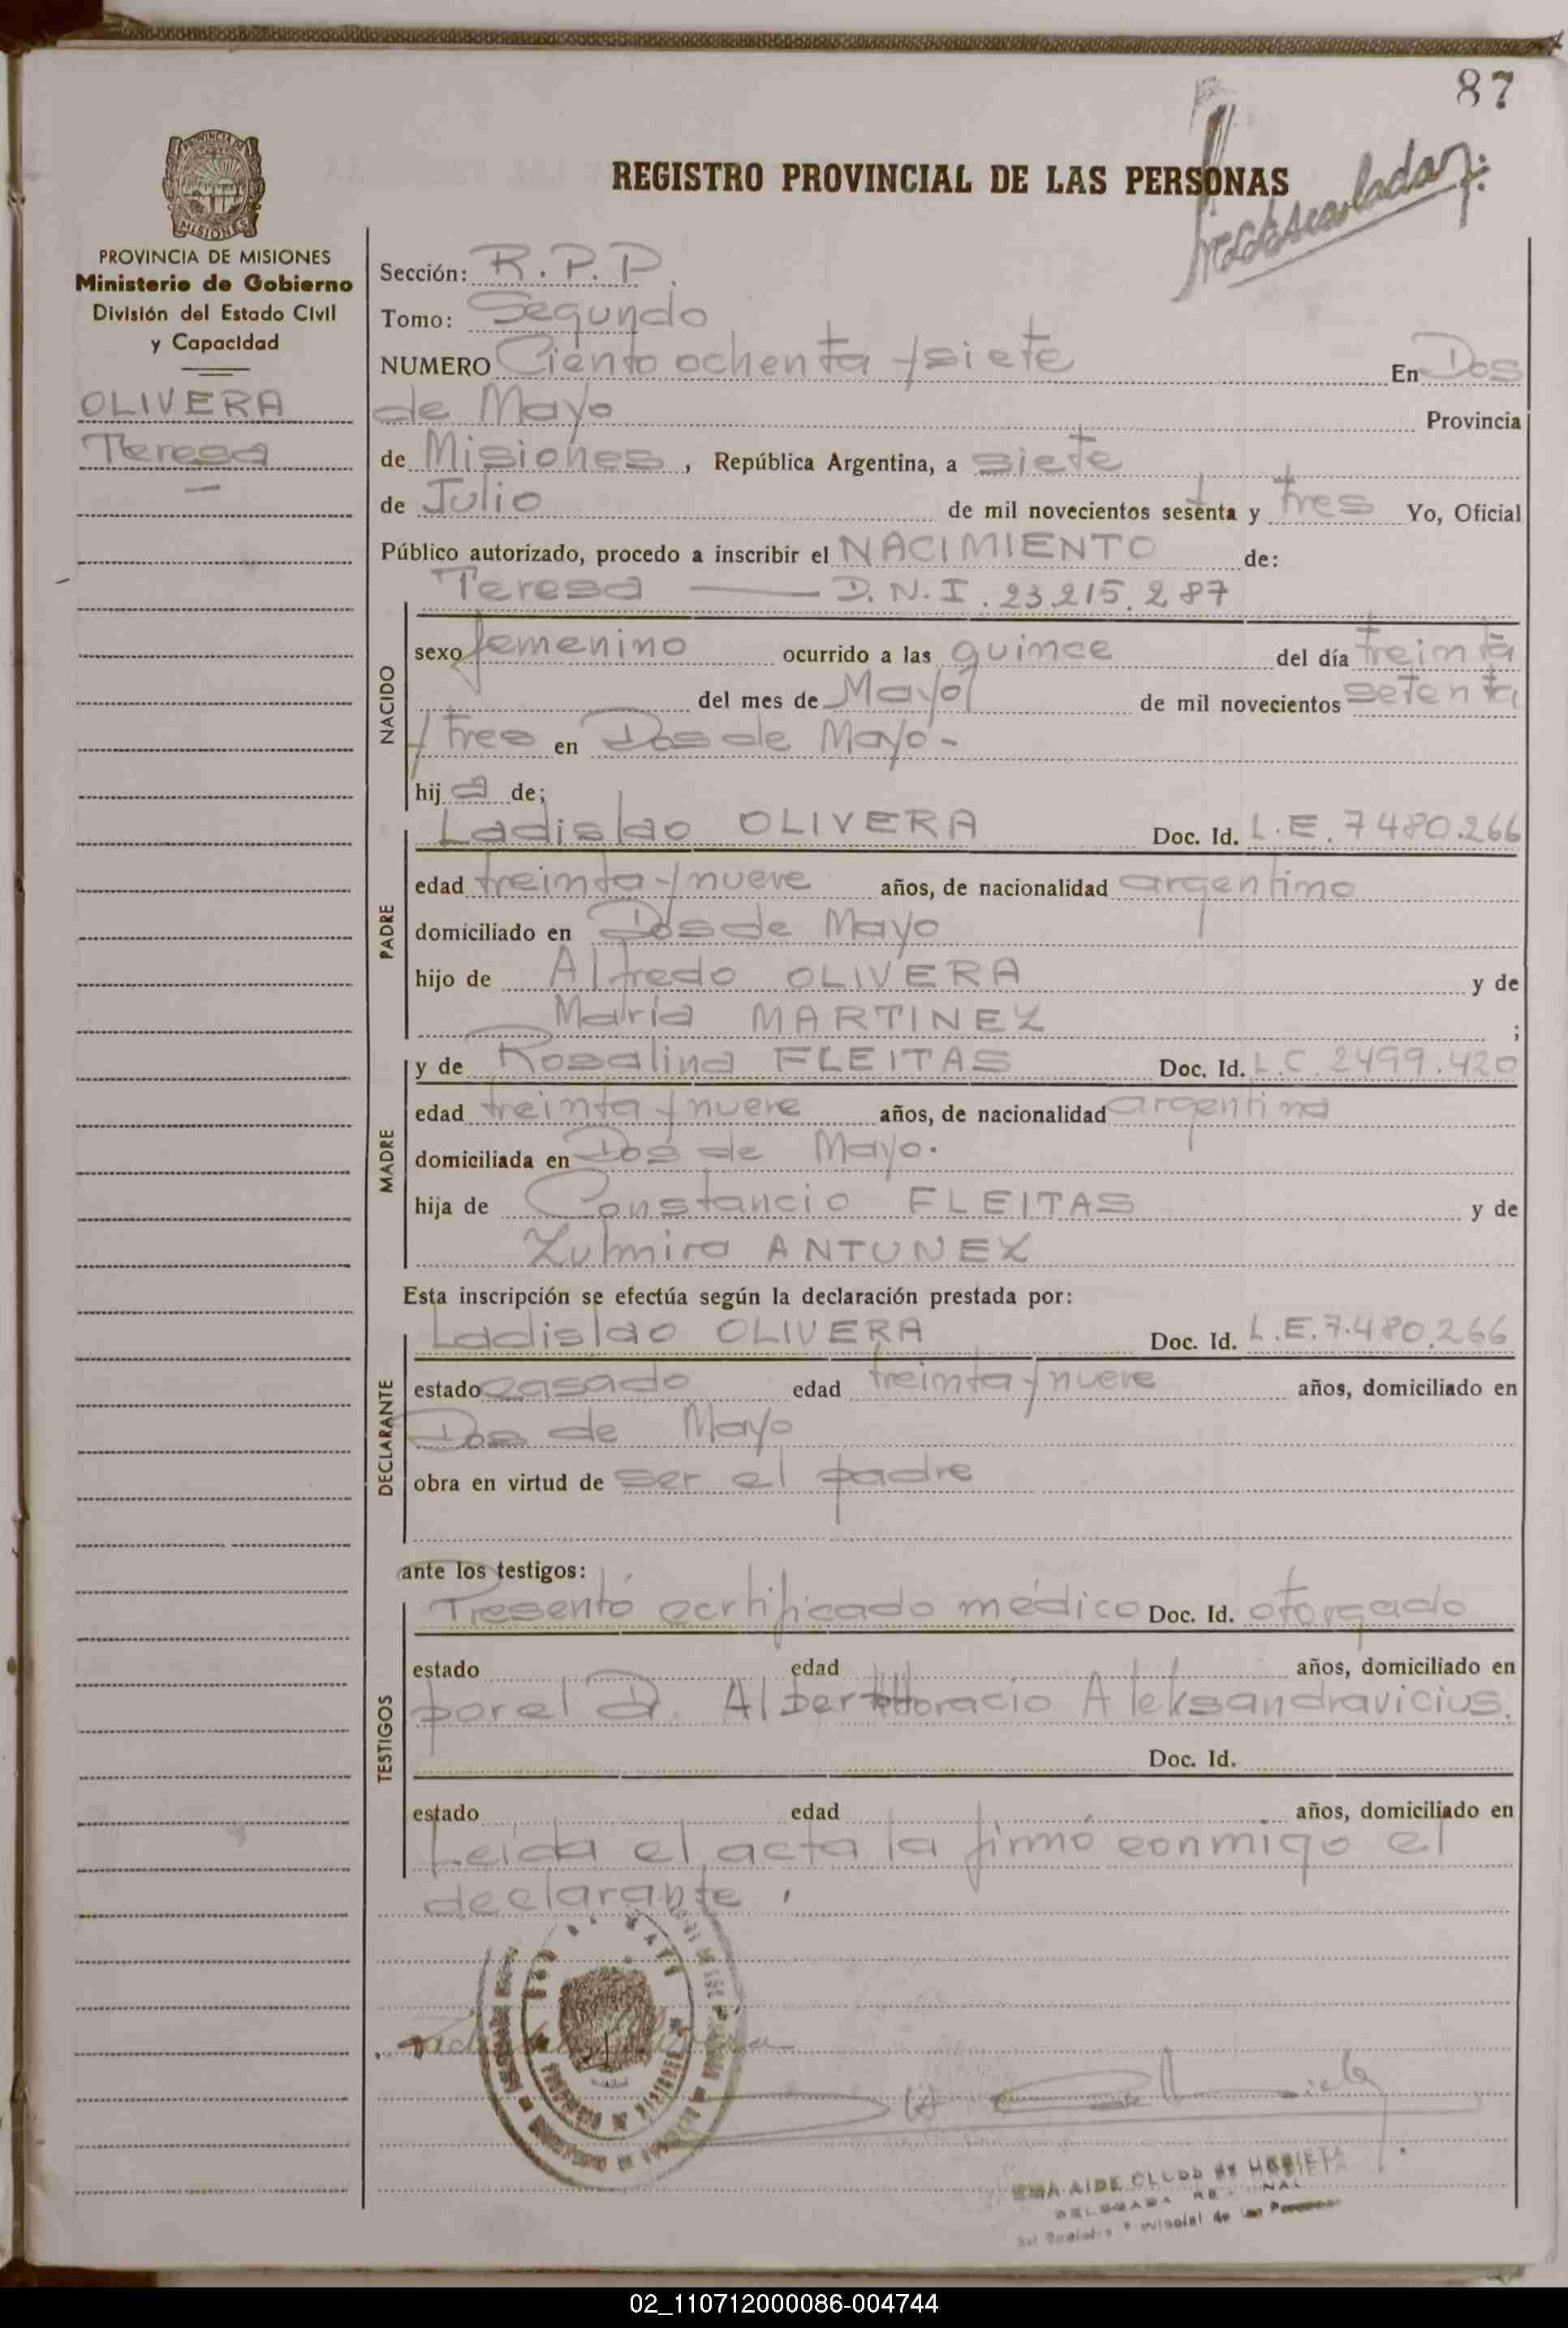 87
REGISTRO PROVINCIAL DE LAS PERSONAS
PROVINCIA DE MISIONES
MISIONES
PROVINCIA DE MISIONES
Ministerio de Gobierno
División del Estado Civil
y Capacidad
OLIVERA
Teresa
Sección: R.P.P.
Tomo: Segundo
NUMERO Ciento ochenta y siete En Dos
de Mayo Provincia
de Misiones, República Argentina, a siete
de Julio de mil novecientos sesenta y tres Yo, Oficial
Público autorizado, procedo a inscribir el NACIMIENTO de:
Teresa — D.N.I. 23.215.287
NACIDO
sexo femenino ocurrido a las quince del día treinta
del mes de Mayo de mil novecientos setenta
y tres en Dos de Mayo -
hij a de;
PADRE
Ladislao OLIVERA Doc. Id. L.E. 7480.266
edad treinta y nueve años, de nacionalidad argentino
domiciliado en Dos de Mayo
hijo de Alfredo OLIVERA y de
María MARTINEZ ;
MADRE
y de Rosalina FLEITAS Doc. Id. L.C. 2499.420
edad treinta y nueve años, de nacionalidad argentina
domiciliada en Dos de Mayo.
hija de Constancio FLEITAS y de
Zulmira ANTUNEZ
Esta inscripción se efectúa según la declaración prestada por:
DECLARANTE
Ladislao OLIVERA Doc. Id. L.E. 7.480.266
estado casado edad treinta y nueve años, domiciliado en
Dos de Mayo
obra en virtud de ser el padre
ante los testigos:
TESTIGOS
Presentó certificado médico Doc. Id. otorgado
estado edad años, domiciliado en
por el D. Alberto Horacio Aleksandravicius.
Doc. Id.
estado edad años, domiciliado en
Leída el acta la firmó conmigo el
declarante.
AIDE de URRIETA
02_110712000086-004744